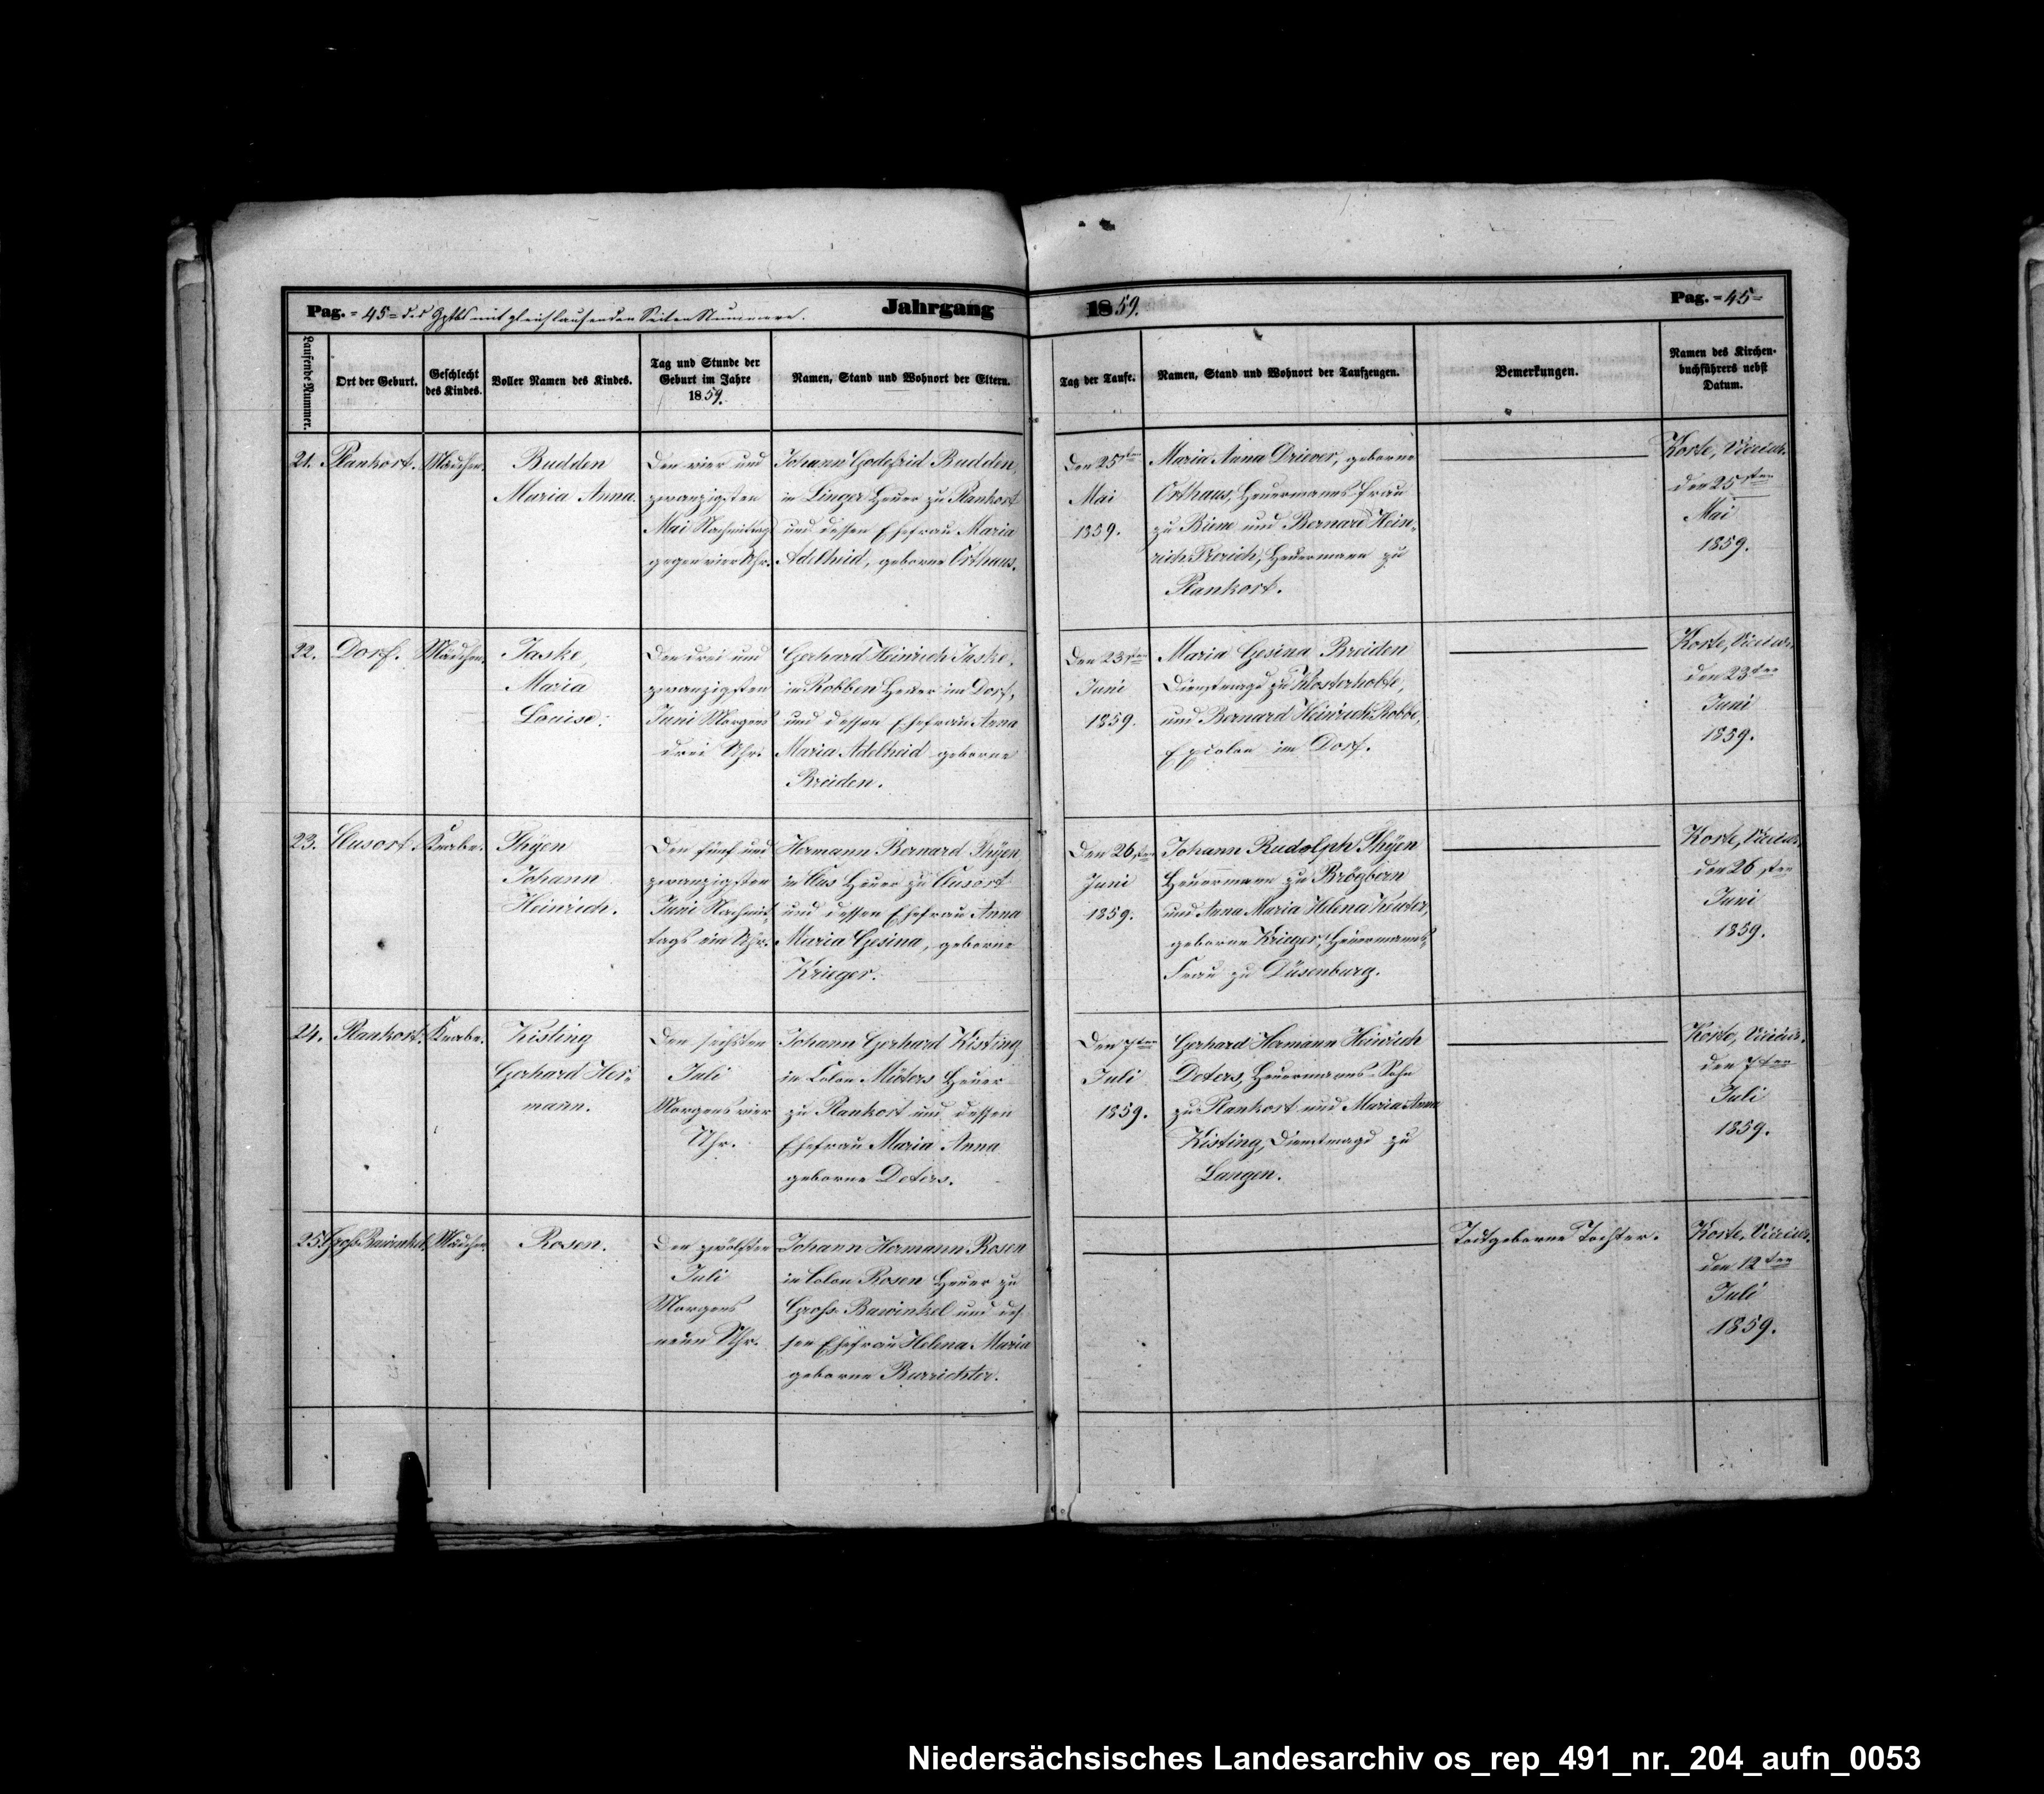 Pag. = 45 = des Hptbs mit gleichlaufenden Seiten Nummern.
Jahrgang
1859.
Pag. = 45 =
Laufende Nummer.
Ort der Geburt.
Geschlecht
des Kindes.
Voller Namen des Kindes.
Tag und Stunde der
Geburt im Jahre
1859.
Namen, Stand und Wohnort der Eltern.
Tag der Taufe.
Namen, Stand und Wohnort der Taufzeugen.
Bemerkungen.
Namen des Kirchen-
buchführers nebst
Datum.
21.
Plankort.
Mädchen.
Budden
Maria Anna.
Den vier und
zwanzigsten
Mai Nachmittags
gegen vier Uhr.
Johann Godefrid Budden,
in Linger Heuer zu Plankort
und dessen Ehefrau Maria
Adelheid, geborne Osthaus.
Den 25sten
Mai
1859.
Maria Anna Driever, geborne
Osthaus, Heuermanns-Frau
zu Biene und Bernard Hein-
rich, Heuermann zu
Plankort.
Korte, Vicius.
den 25sten
Mai
1859.
22.
Dorf.
Mädchen.
Taske,
Maria
Louise.
Den drei und
zwanzigsten
Juni Morgens
drei Uhr.
Gerhard Heinrich Taske,
in Robben Heuer im Dorf,
und dessen Ehefrau Anna
Maria Adelheid geborne
Breiden.
Den 23sten
Juni
1859.
Maria Gesina Breiden
Dienstmagd zu Klosterholte,
und Bernard Heinrich Robbe,
Excolon im Dorf.
Korte, Vicius.
den 23ten
Juni
1859.
23.
Clusort.
Knabe.
Thÿen
Johann
Heinrich.
Den fünf und
zwanzigsten
Juni Nachmit-
tags ein Uhr.
Hermann Bernard Thÿen
in Clus Heuer zu Clusort
und dessen Ehefrau Anna
Maria Gesina, geborne
Krieger.
Den 26sten
Juni
1859.
Johann Rudolph Thÿen
Heuermann zu Brögbern
und Anna Maria Helena Keuter,
geborne Krieger, Heuermanns-
Frau zu Düsenburg.
Korte, Vicius.
den 26sten
Juni
1859.
24.
Plankort.
Knabe.
Kisting
Gerhard Her-
mann.
Den sechsten
Juli
Morgens vier
Uhr.
Johann Gerhard Kisting
in Colon Müters Heuer
zu Plankort und dessen
Ehefrau Maria Anna
geborne Deters.
Den 7ten
Juli
1859.
Gerhard Hermann Heinrich
Deters, Heuermanns-Sohn
zu Plankort und Maria Anna
Kisting, Dienstmagd zu
Langen.
Korte, Vicius.
den 7ten
Juli
1859.
25.
Groß Bawinkel.
Mädchen.
Rosen.
Den zwölften
Juli
Morgens
neun Uhr.
Johann Hermann Rosen
in Colon Rosen Heuer zu
Groß Bawinkel und des-
sen Ehefrau Helena Maria
geborne Burrichter.
Todtgeborne Tochter.
Korte, Vicius.
den 12ten
Juli
1859.
Niedersächsisches Landesarchiv os_rep_491_nr._204_aufn_0053